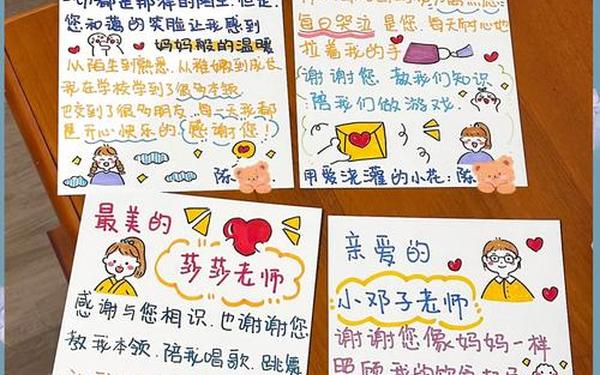 一切都是那样的陌生.但是.
您和蔼的笑脸让我感到
妈妈般的温暖
从陌生到熟悉.从稚嫩到成长
我在学校学到了很多本领
也交到了很多朋友.每一天我都
是开心快乐的.感谢您！
陈
每日哭泣是您.每天耐心地
拉着我的手
谢谢您.教我们知识.
陪我们做游戏.
用爱浇灌的小花：陈
最美的
莎莎老师
感谢与您相识.也谢谢您
教我本领.陪我唱歌.跳舞
亲爱的
小邓子老师
谢谢您像妈妈一样
照顾我的饮食起